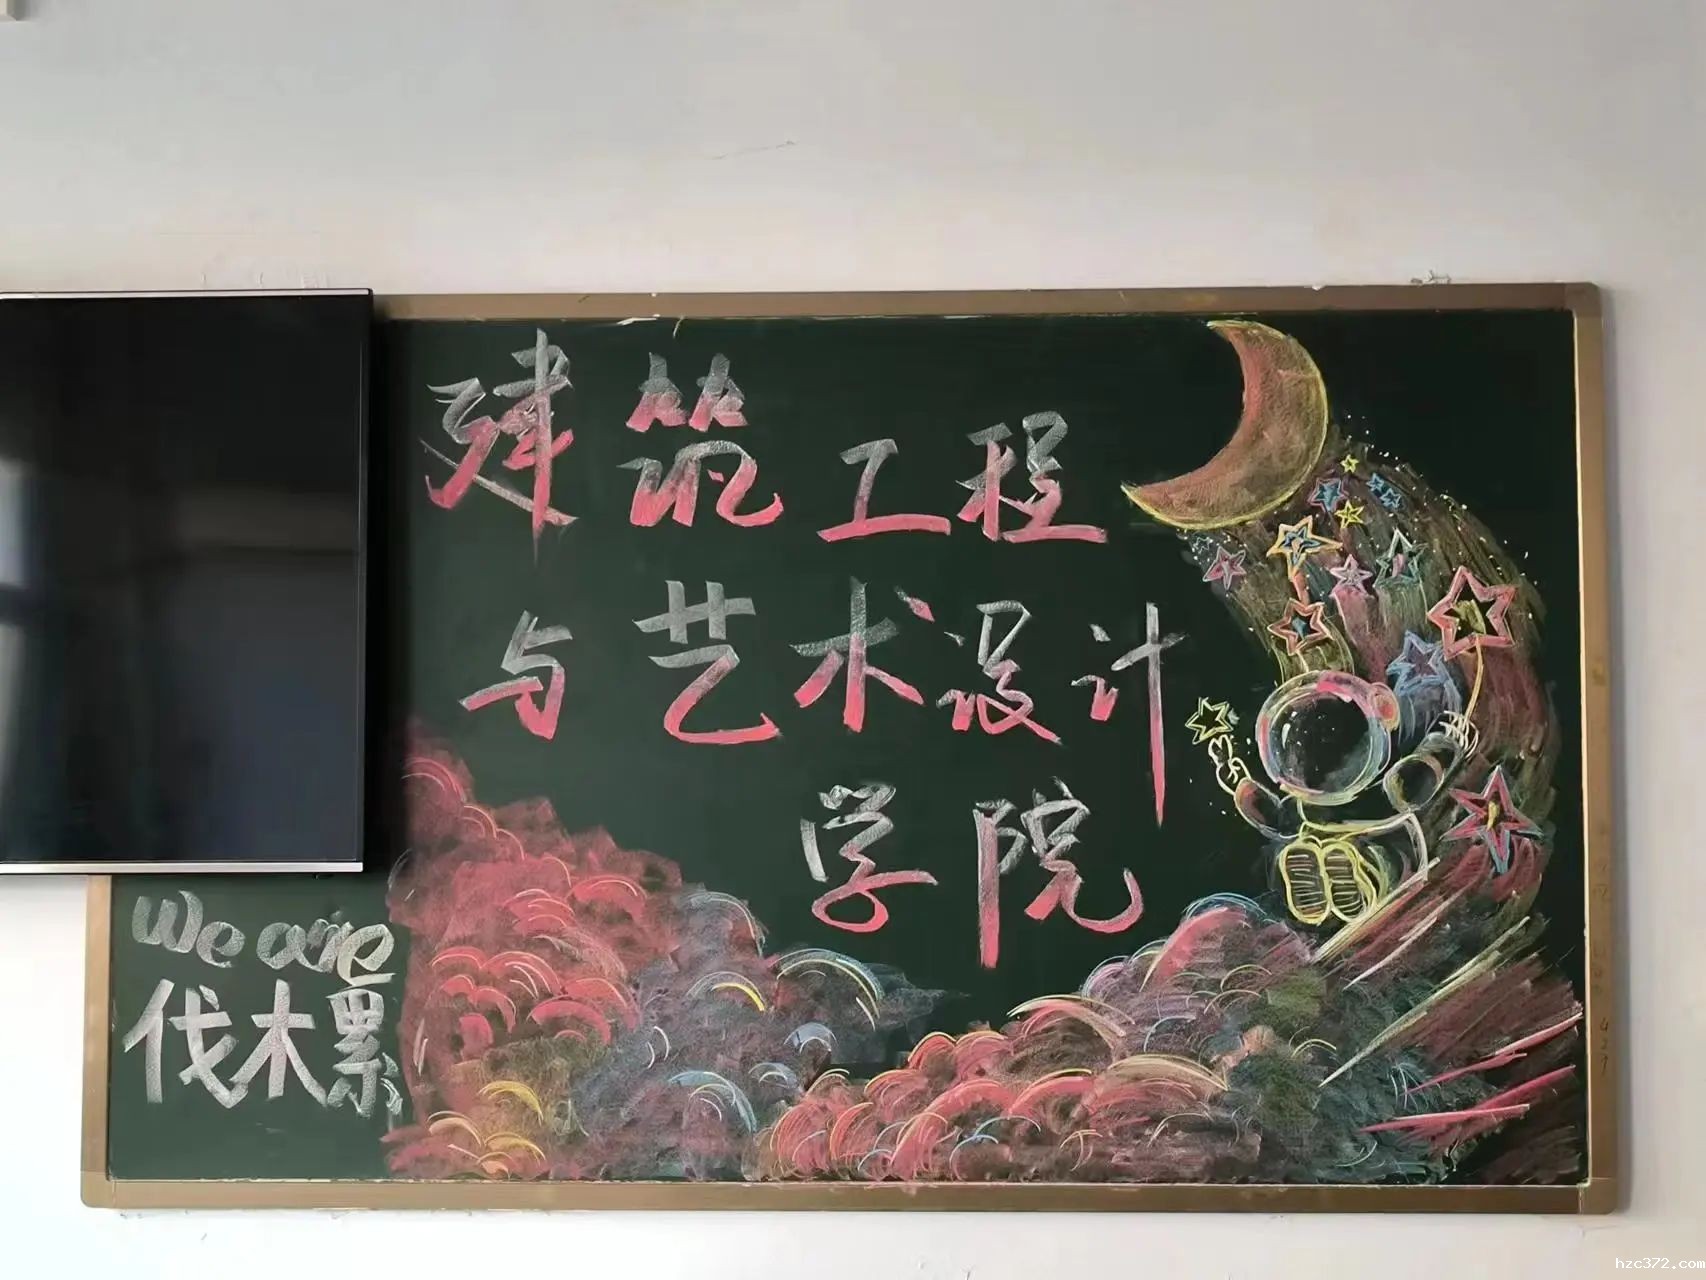 建筑工程
与艺术设计
学院
We are
伐木累
hzc372.com